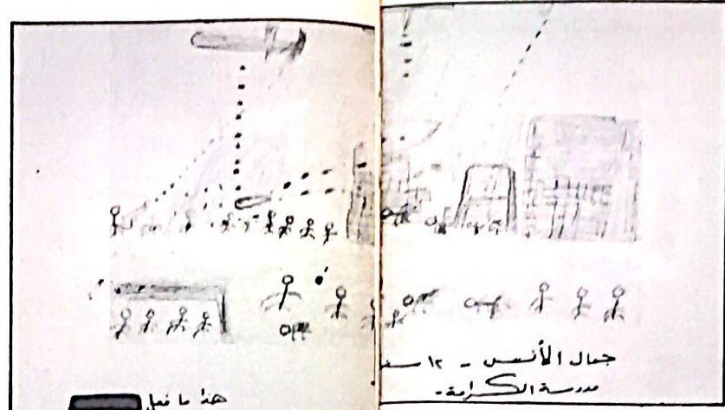 جمال الأنسي - ١٢ سنـ
مدرسة الكرامة-
هذا ما فعل